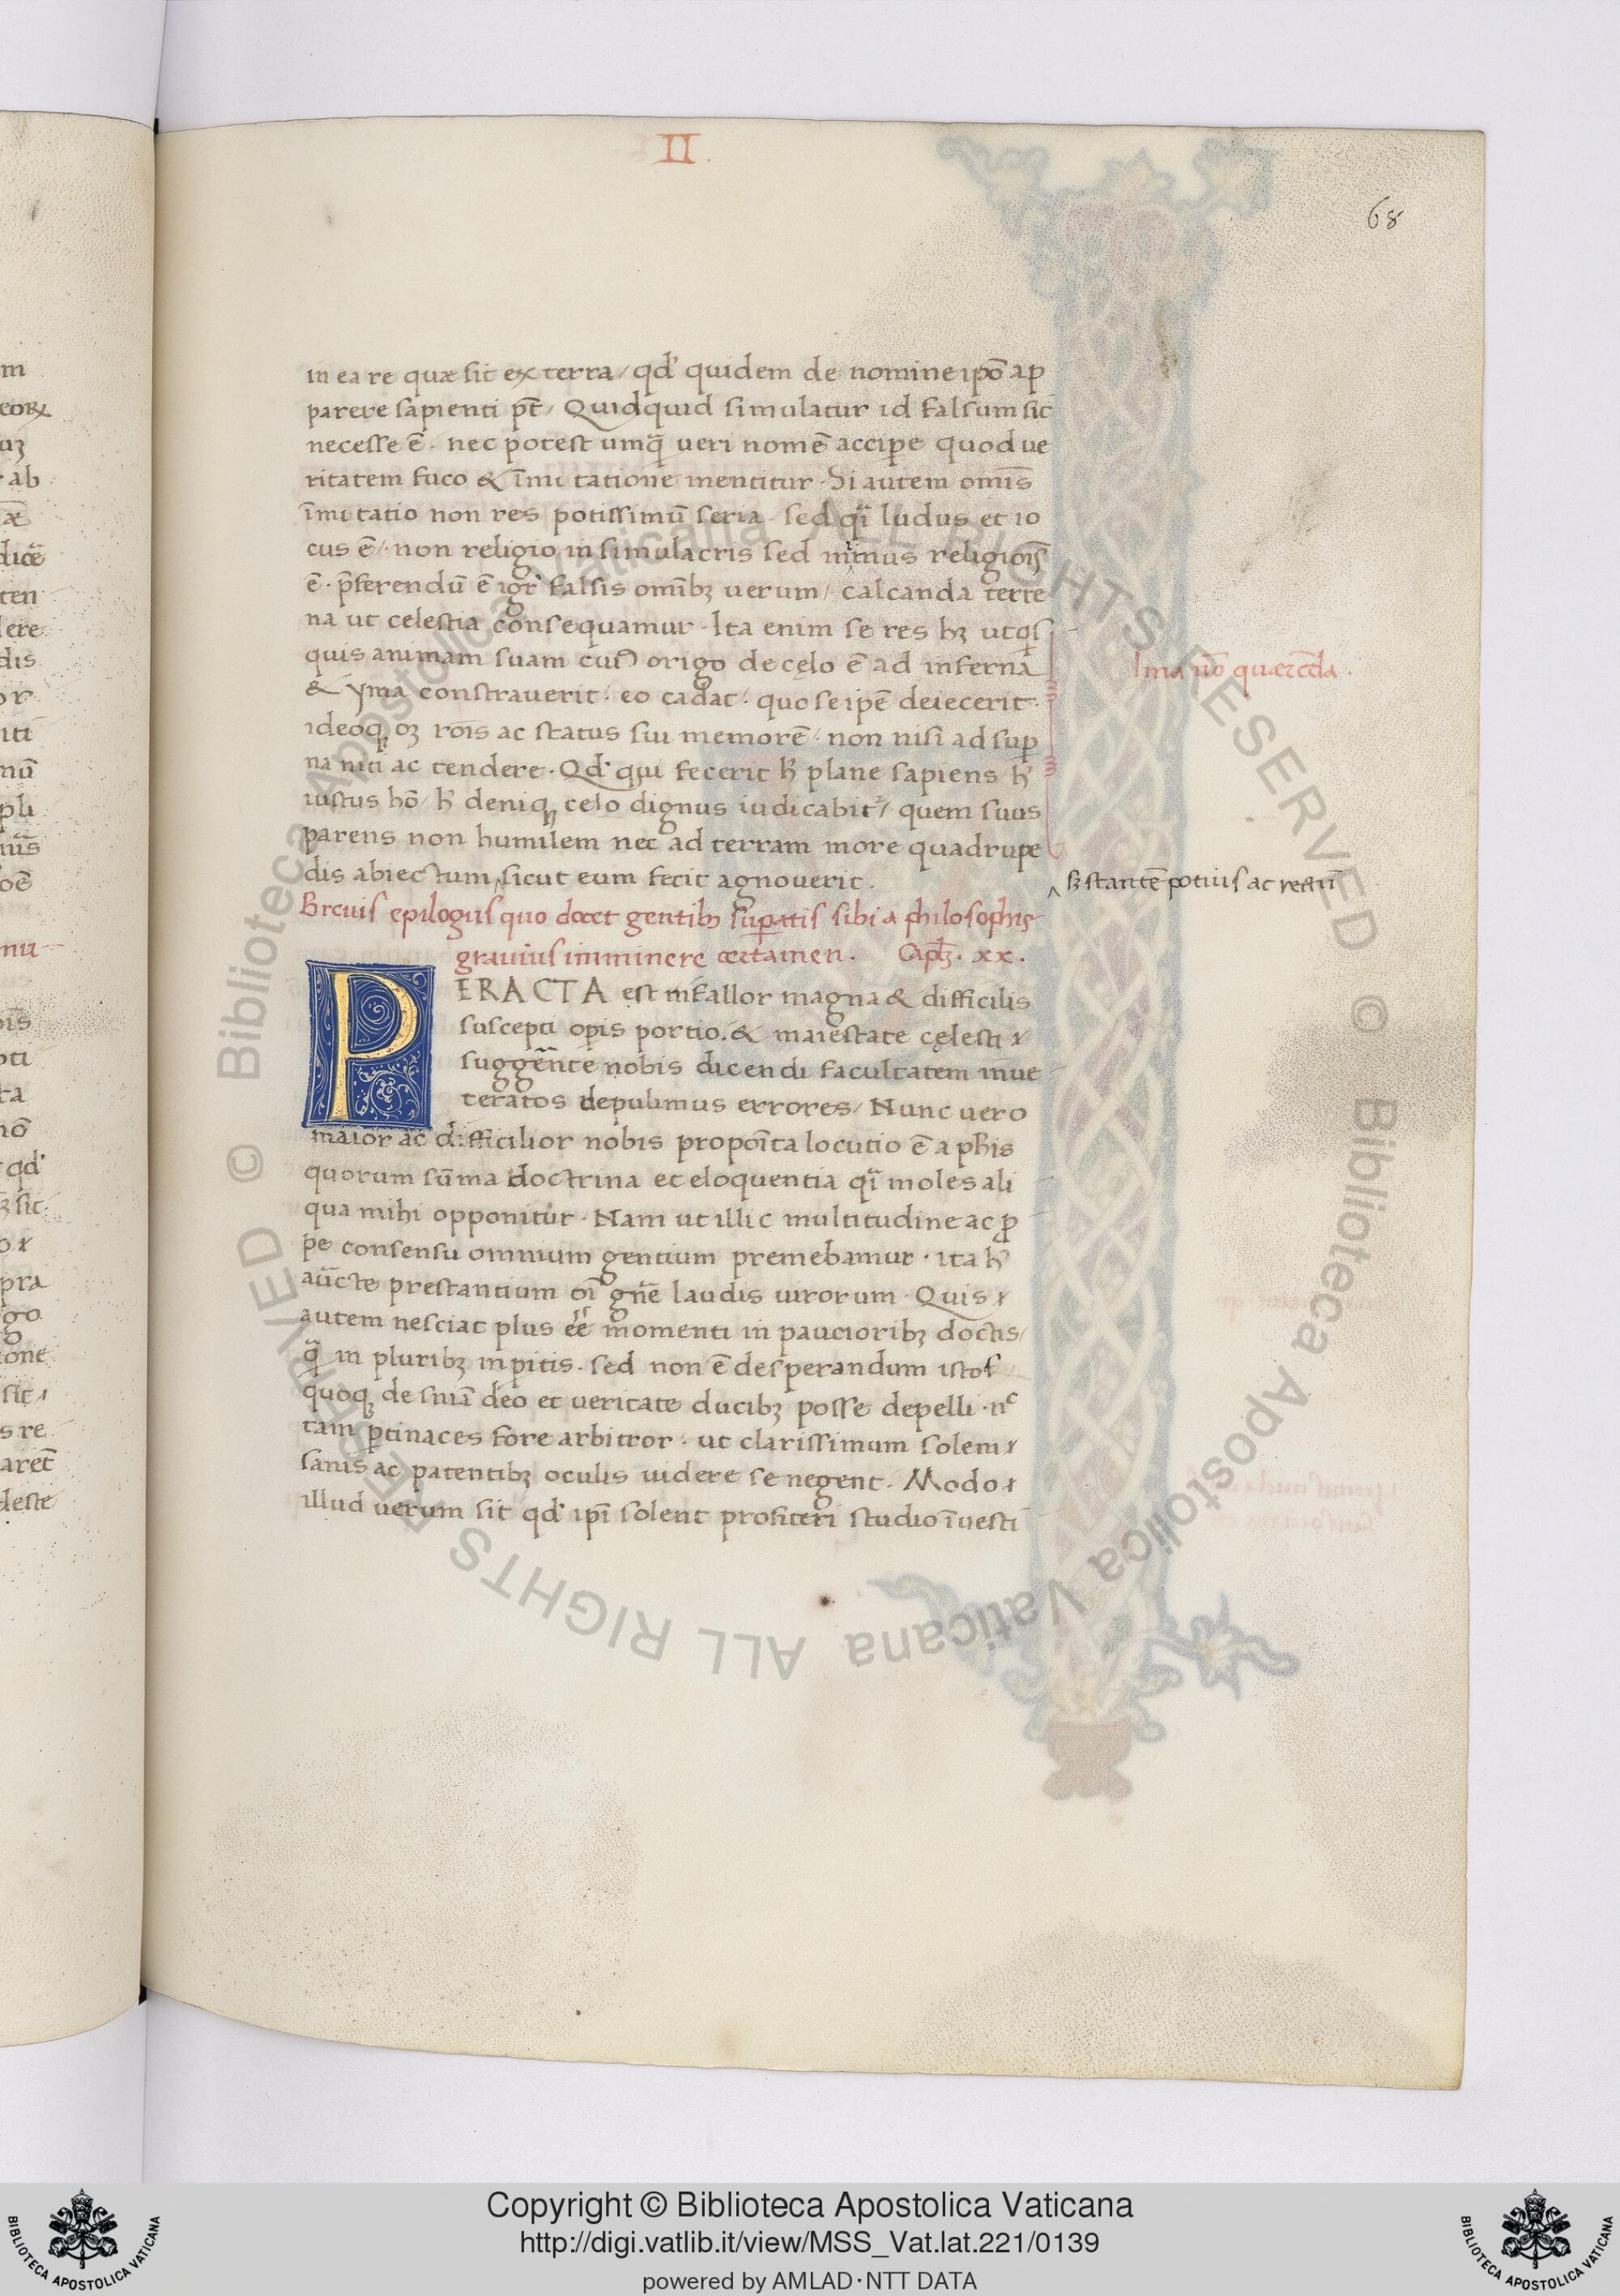 II.
68
in ea re quæ sit ex terra / qd' quidem de nomine ipo᷎ ap
parere sapienti pt̄ / Quidquid simulatur id falsum sit
necesse ē. nec potest umq̄ veri nomē accipe quod ve
ritatem fuco & īmitatione mentitur. Si autem omīs
īmitatio non res potissimū seria sed qī ludus et io
cus ē / non religio in simulacris sed mimus religiōis
ē. p̄ferendū ē igr̄ falsis omībꝫ verum / calcanda terre
na ut celestia consequamur. Ita enim se res hꝫ ut qs
quis animam suam cuiꝰ origo de cęlo ē ad inferna
& yma constraverit. eo cadat. quo se ipē deiecerit.
ideoqꝫ oꝫ rōis ac status sui memorē. non nisi ad sup
na niti ac tendere. Qd' qui fecerit h̓ plane sapiens h̓
iustus hō / h̓ deniqꝫ celo dignus iudicabit̉ / quem suus
parens non humilem nec ad terram more quadrupe
dis abiectum ‸ sicut eum fecit agnoverit.
Ima nō quærēda.
‸ sꝫ stantē potius ac rectū
Brevis epilogus quo docet gentibꝫ supatis sibi a philosophis
gravius imminere certamen. Caplꝫ. xx.
PERACTA est ni fallor magna & difficilis
suscepti opis portio. & maiestate cęlesti
suggerēte nobis dicendi facultatem inve
teratos depulimus errores / Nunc vero
maior ac difficilior nobis propoīta locutio ē a phīs
quorum sūma doctrina et eloquentia qī moles ali
qua mihi opponitur. Nam ut illic multitudine ac ꝓ
pe consensu omnium gentium premebamur. ita h̓
auc̄te prestantium oī gn̄e laudis virorum. Quis
autem nesciat plus ēe momenti in paucioribꝫ doctis /
q̄ in pluribꝫ inpitis. sed non ē desperandum istos
quoqꝫ de sn̄ia deo et veritate ducibꝫ posse depelli. nc̄
tam ptinaces fore arbitror. ut clarissimum solem
sanis ac patentibꝫ oculis videre se negent. Modo
illud verum sit qd' ipī solent profiteri studio īvesti
Copyright © Biblioteca Apostolica Vaticana
http://digi.vatlib.it/view/MSS_Vat.lat.221/0139
powered by AMLAD·NTT DATA
BIBLIOTECA APOSTOLICA VATICANA
BIBLIOTECA APOSTOLICA VATICANA
© Biblioteca Apostolica Vaticana ALL RIGHTS RESERVED © Biblioteca Apostolica Vaticana ALL RIGHTS RESERVED